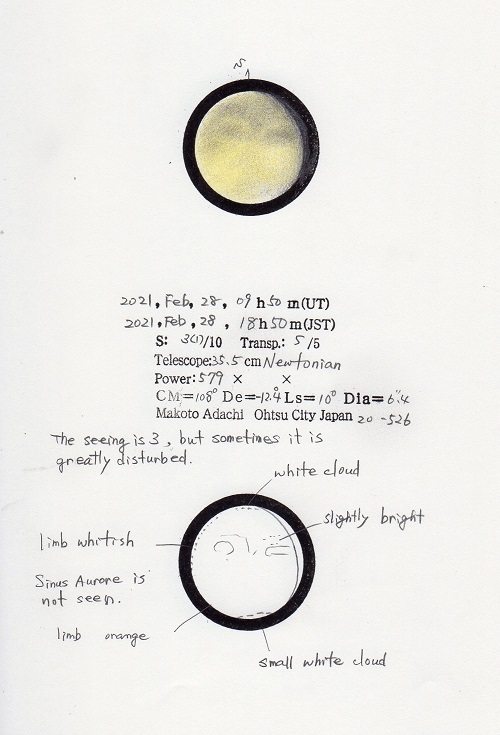 N
2021, Feb, 28, 09 h 50 m (UT)
2021, Feb, 28, 18 h 50 m (JST)
S: 3(1)/10 Transp.: 5/5
Telescope: 35.5 cm Newtonian
Power: 579 × ×
CM=108° De=-12.4° Ls=10° Dia=6".4
Makoto Adachi Ohtsu City Japan 20-526
The seeing is 3, but sometimes it is
greatly disturbed.
white cloud
slightly bright
limb whitish
Sinus Aurore is
not seen.
limb orange
small white cloud